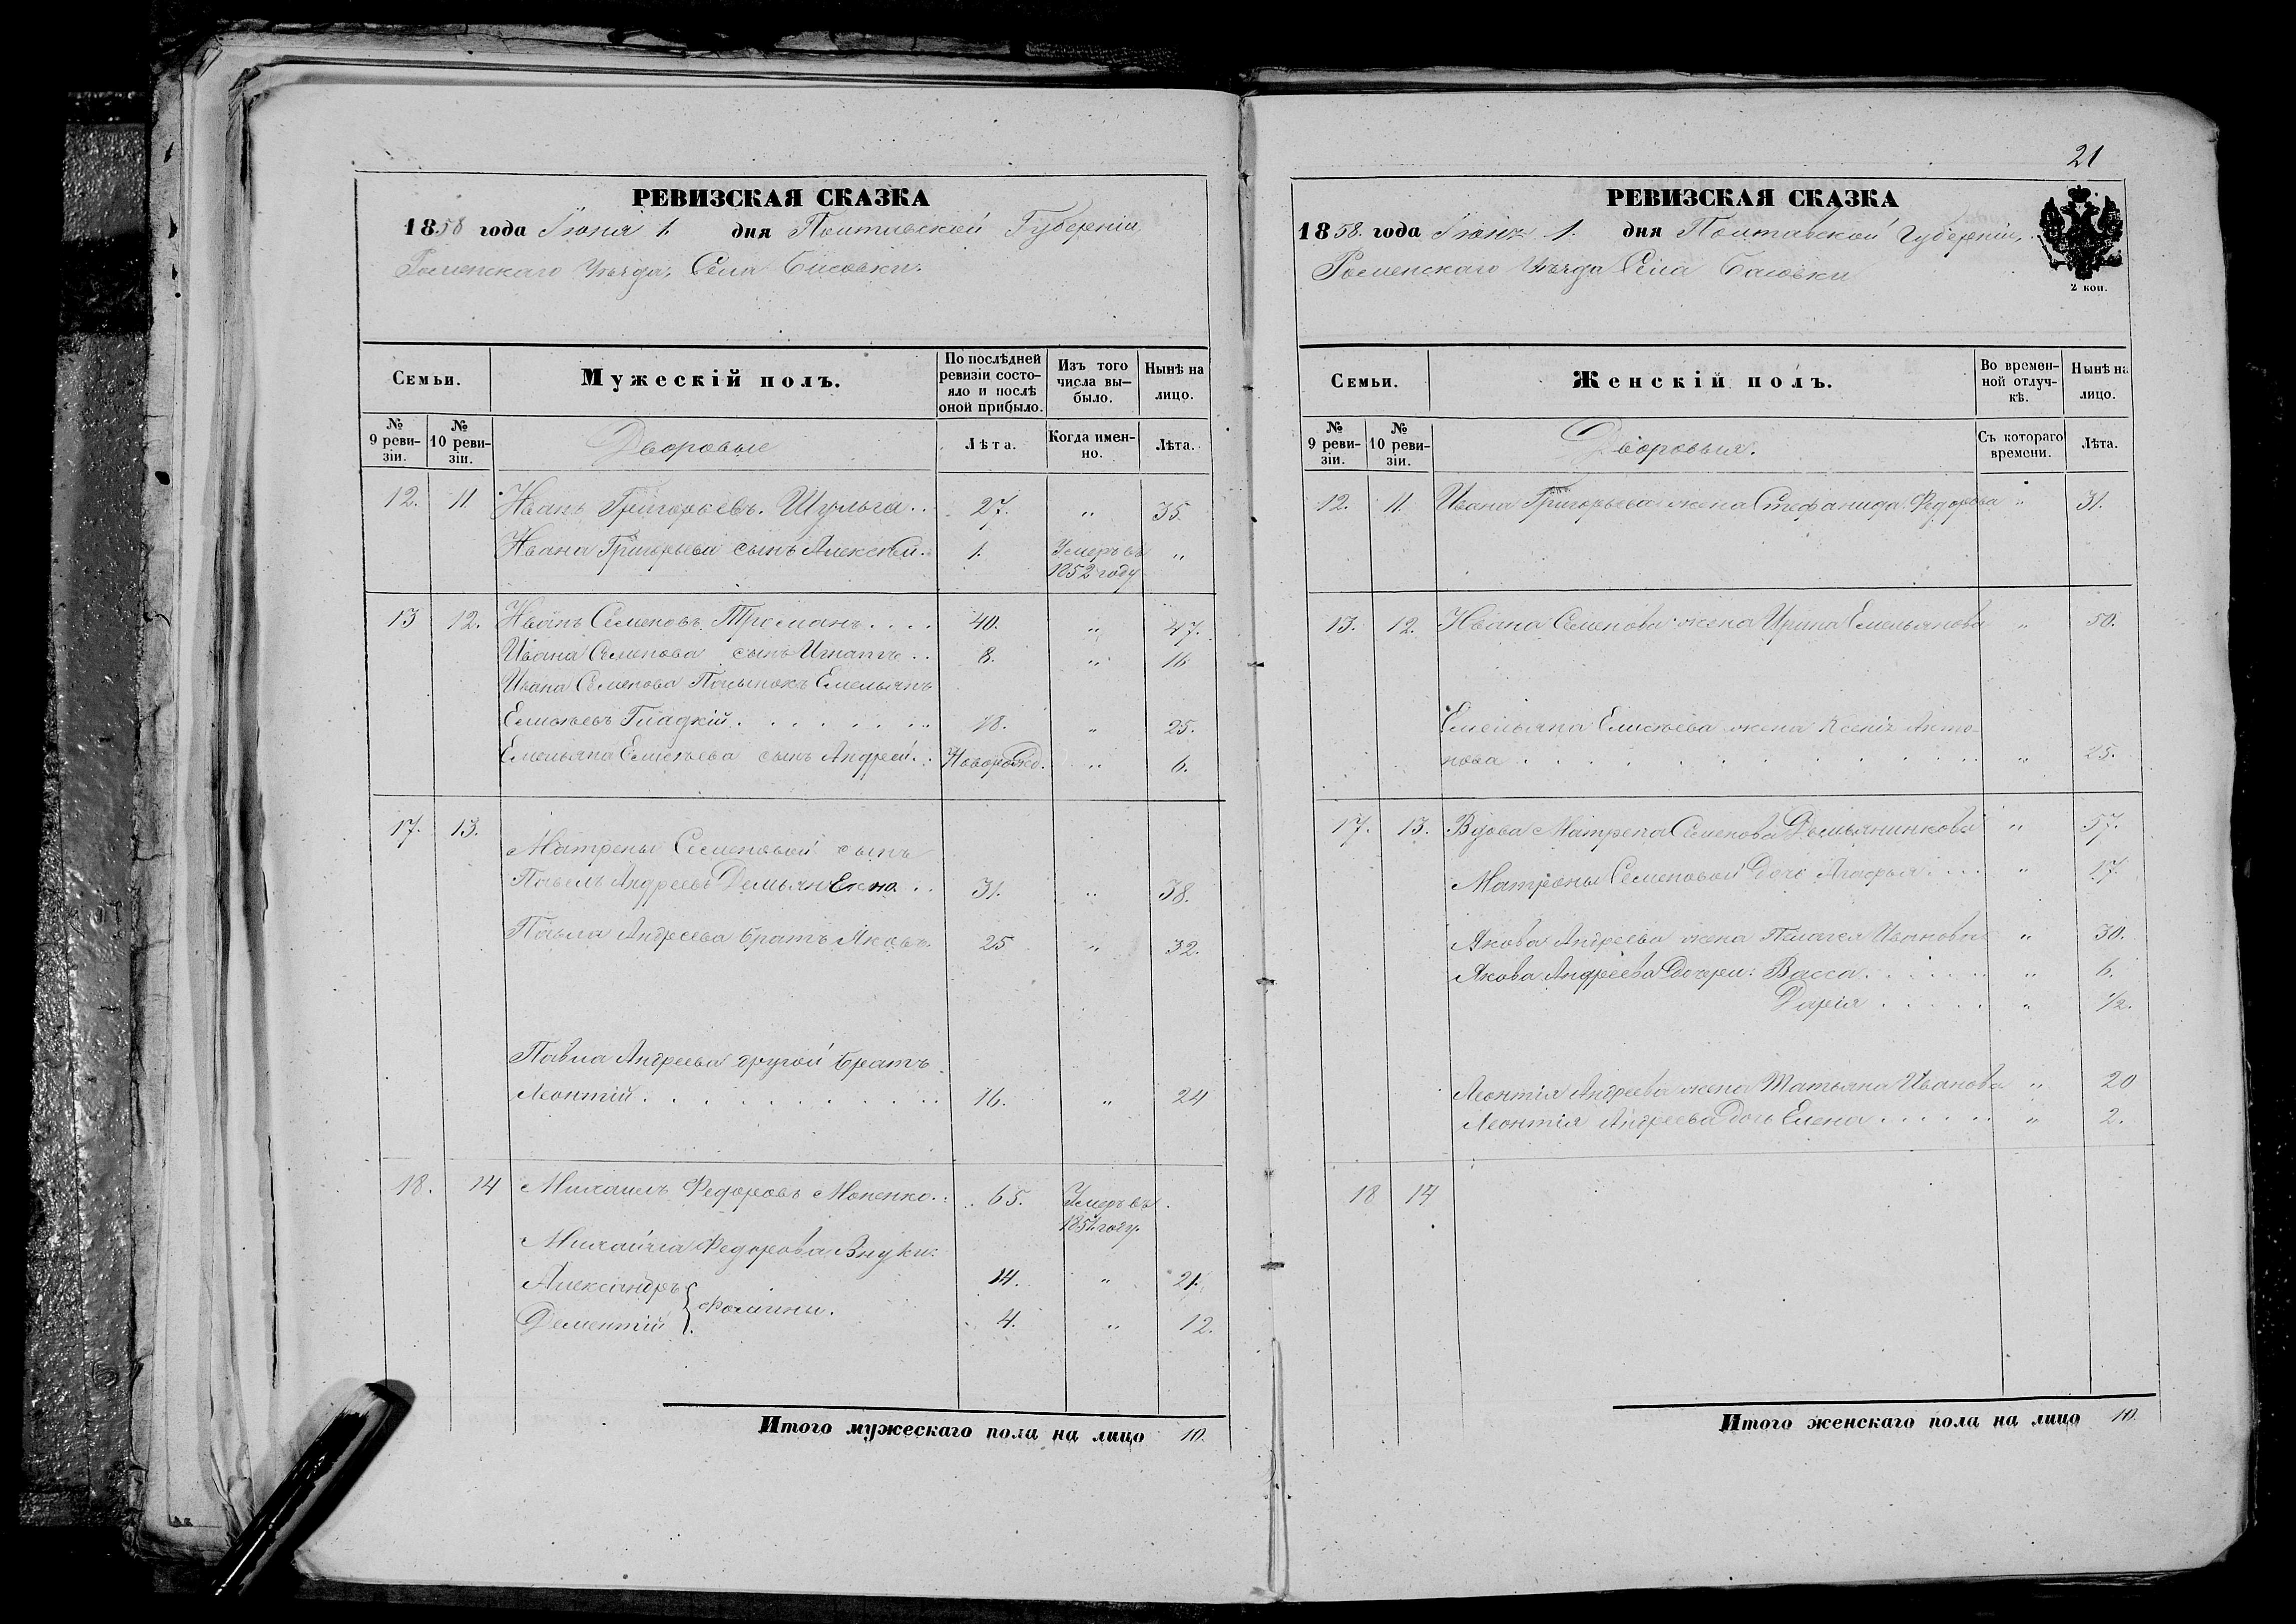 РЕВИЗСКАЯ СКАЗКА
1858 года Іюня 1. дня Полтавской Губерніи
Роменскаго Уѣзда, Села Басовки.
Семьи.
Мужескій полъ.
По послѣдней ревизіи состояло и послѣ оной прибыло.
Изъ того числа выбыло.
Нынѣ на лицо.
№ 9 ревизіи.
№ 10 ревизіи.
Дворовые
Лѣта.
Когда именно.
Лѣта.
12. 11 Иванъ Григорьевъ Шульга.. 27. " 35.
Ивана Григорьева сынъ Алексѣй.. 1. Умеръ въ 1852 году "
13 12. Иванъ Семеновъ Тросманъ.... 40. " 47.
Ивана Семенова сынъ Игнатъ.. 8. " 16
Ивана Семенова Пасынокъ Емельянъ
Елисѣевъ Гладкій........ 18. " 25.
Емельяна Елисѣева сынъ Андрей.. Новорожд. " 6.
17. 13.
Матрены Семеновой сынъ
Павелъ Андреевъ Демьяненко.. 31. " 38.
Павла Андреева братъ Яковъ. 25 " 32.
Павла Андреева другой братъ
Леонтій.......... 16. " 24
18. 14 Михаилъ Федоровъ Моненко.. 65. Умеръ въ 1851 году.
Михайла Федорова Внуки:
Александръ 14. " 21.
Дементій } Фомины. 4. " 12.
Итого мужескаго пола на лицо 10.
21
РЕВИЗСКАЯ СКАЗКА
1858. года Іюня 1. дня Полтавской Губерніи,
Роменскаго Уѣзда Села Басовки
2 коп.
Семьи.
Женскій полъ.
Во временной отлучкѣ.
Нынѣ на лицо.
№ 9 ревизіи.
№ 10 ревизіи.
Дворовыя.
Съ котораго времени.
Лѣта.
12. 11. Ивана Григорьева жена Стефанида Федорова " 31.
13. 12. Ивана Семенова жена Ирина Емельянова " 50.
Емельяна Елисѣева жена Ксенія Анто-
нова............ " 25.
17. 13. Вдова Матрена Семенова Демьянинкова " 57.
Матрены Семеновой Дочь Агафья.... " 17.
Якова Андреева жена Пелагея Иванова " 30.
Якова Андреева Дочери: Васса....... " 6.
Дарія..... " 1/2.
Леонтія Андреева жена Татьяна Иванова " 20
Леонтія Андреева Дочь Елена...... " 2.
18 14
Итого женскаго пола на лицо 10.